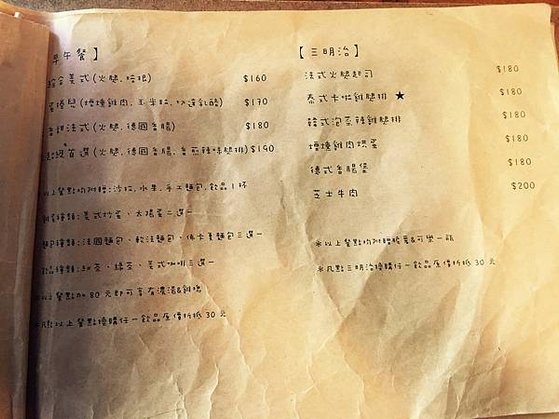 早午餐】
綜合美式(火腿.培根) $160
(燻雞肉.玉米粒.切達乳酪) $170
法式(火腿.德國香腸) $180
首選(火腿.德國香腸.香煎辣味腿排) $190
以上餐點均附贈:沙拉.水果.手工麵包.飲品1杯
種類:美式炒蛋、太陽蛋二選一
麵包種類:法國麵包、軟法麵包、佛卡夏麵包三選一
飲品種類:紅茶、綠茶、美式咖啡三選一
以上餐點加80元即可享有濃湯&雞塊
凡點以上餐點換購任一飲品原價折抵30元
【三明治】
法式火腿起司 $180
泰式卡啦雞腿排★ $180
韓式泡菜辣雞腿排 $180
煙燻雞肉烘蛋 $180
德式香腸堡 $180
芝士牛肉 $200
※以上餐點均附贈脆薯&可樂一瓶
※凡點三明治換購任一飲品原價折抵30元